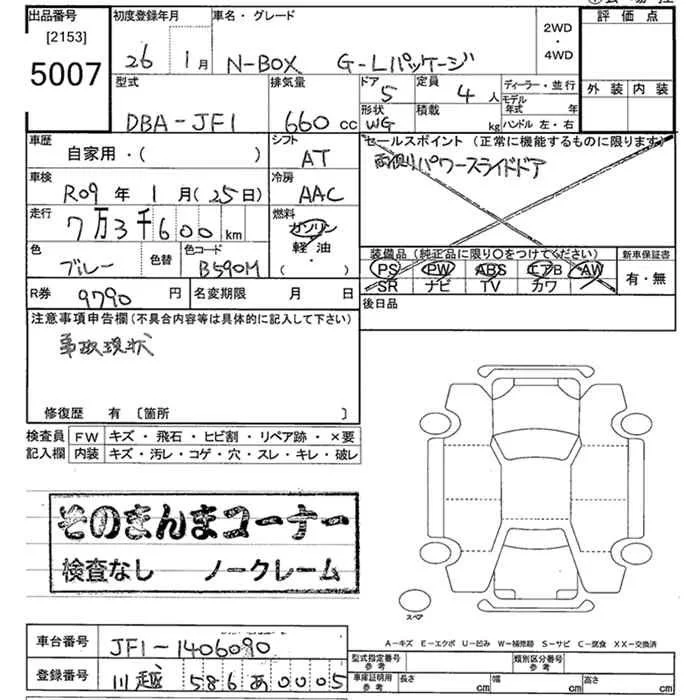 出品番号
[2153]
5007
初度登録年月
26 1月
車名・グレード
N-BOX G-Lパッケージ
2WD
・
4WD
評価点
外装 内装
型式
DBA-JF1
排気量
660 cc
ドア
5
形状
WG
定員
4 人
積載
kg
ディーラー・並行
モデル年式 年
ハンドル 左・右
車歴
自家用・( )
シフト
AT
車検
R09年 1月(25日)
冷房
AAC
走行
7万3千600km
燃料
ガソリン
軽油・
( )
色
ブルー
色替
色コード
B590M
R券 9790円
名変期限 月 日
セールスポイント(正常に機能するものに限ります)
両側パワースライドドア
装備品(純正品に限り〇をつけてください)
PS PW ABS エアB AW
SR ナビ TV カワ
新車保証書
有・無
後日品
注意事項申告欄(不具合内容等は具体的に記入して下さい)
事故現状
修復歴 有 [箇所 ]
検査員 FW キズ・飛石・ヒビ割・リペア跡・×要
記入欄 内装 キズ・汚レ・コゲ・穴・スレ・キレ・破レ
そのまんまコーナー
検査なし ノークレーム
スペア
A-キズ E-エクボ U-凹み W-補修跡 S-サビ C-腐食 XX-交換済
車台番号 JF1-1406090
登録番号 川越 586 あ 0005
型式指定番号 参考
類別区分番号 参考
車庫証明用 参考 長さ cm 幅 cm 高さ cm